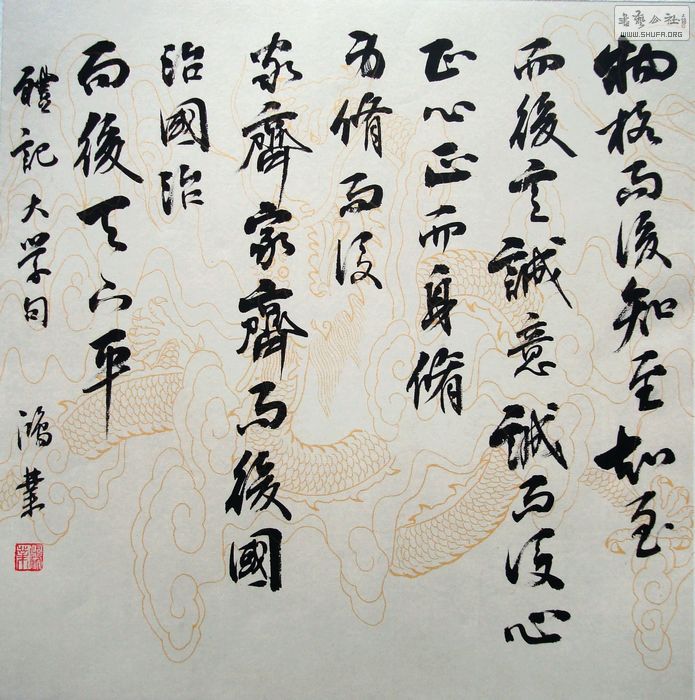 物格而後知至知至
而後意誠意誠而後心
正心正而身脩
身脩而後
家齊家齊而後國
治國治
而後天下平
禮記大學句 鴻業
書藝公社
WWW.SHUFA.ORG